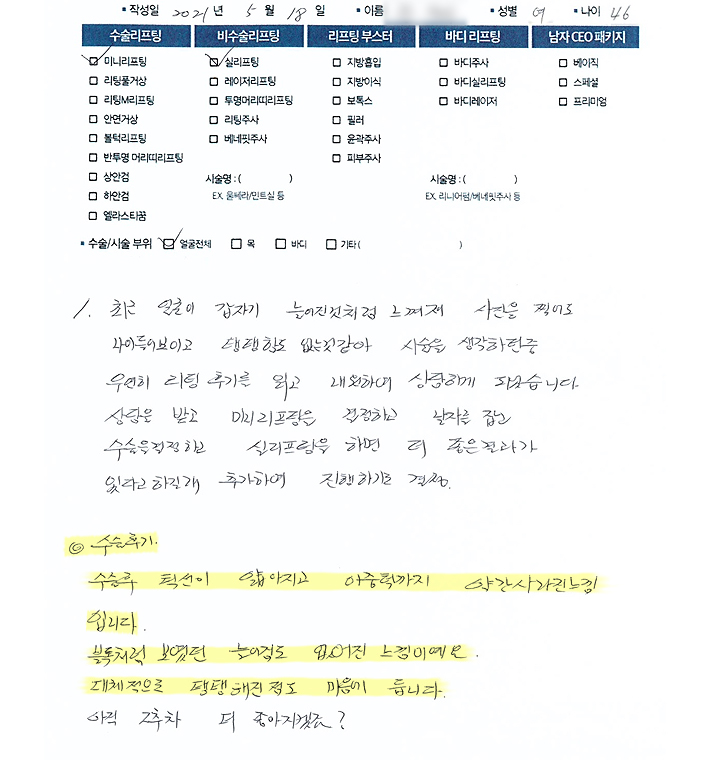 ▪ 작성일 2021 년 5 월 18 일 ▪ 이름 ▪ 성별 여 ▪ 나이 46
수술리프팅 비수술리프팅 리프팅 부스터 바디 리프팅 남자 CEO 패키지
미니리프팅 실리프팅 지방흡입 바디주사 베이직
리팅풀거상 레이저리프팅 지방이식 바디실리프팅 스페셜
리팅M리프팅 투명머리띠리프팅 보톡스 바디레이저 프리미엄
안면거상 리팅주사 필러
볼턱리프팅 베네핏주사 윤곽주사
반투명 머리띠리프팅 피부주사
상안검 시술명 : ( ) 시술명 : ( )
하안검 EX. 울쎄라/민트실 등 EX. 리니어펌/베네핏주사 등
엘라스티꿈
▪ 수술/시술 부위 얼굴전체 목 바디 기타 ( )
1. 최근 얼굴이 갑자기 늘어진것처럼 느껴져 사진을 찍어도
나이들어보이고 탱탱함도 없는것같아 시술을 생각하던중
우연히 리팅 후기를 읽고 내원하여 상담하게 되었습니다.
상담은 받고 미니리프팅은 결정하고 날자를 잡고
수술을결정하고 실리프팅을 하면 더 좋은결과가
있다고하길래 추가하여 진행하기로 결정.
◎ 수술후기.
수술후 턱선이 얇아지고 이중턱까지 약간사라진느낌
입니다.
불독처럼 보였던 늘어짐도 없어진 느낌이예요.
대체적으로 탱탱해진점도 마음에 듭니다.
아직 2주차 더 좋아지겠죠?